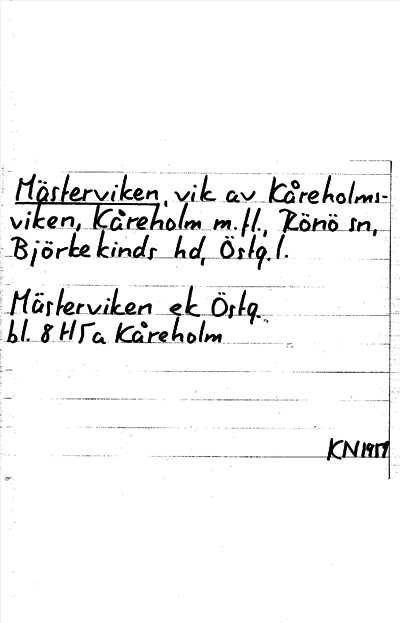 Mästerviken, vik av Kåreholms-
viken, Kåreholm m.fl., Rönö sn,
Björkekinds hd, Östg.l.
Mästerviken ek Östg.
bl. 8 H 5a Kåreholm
KN 1957